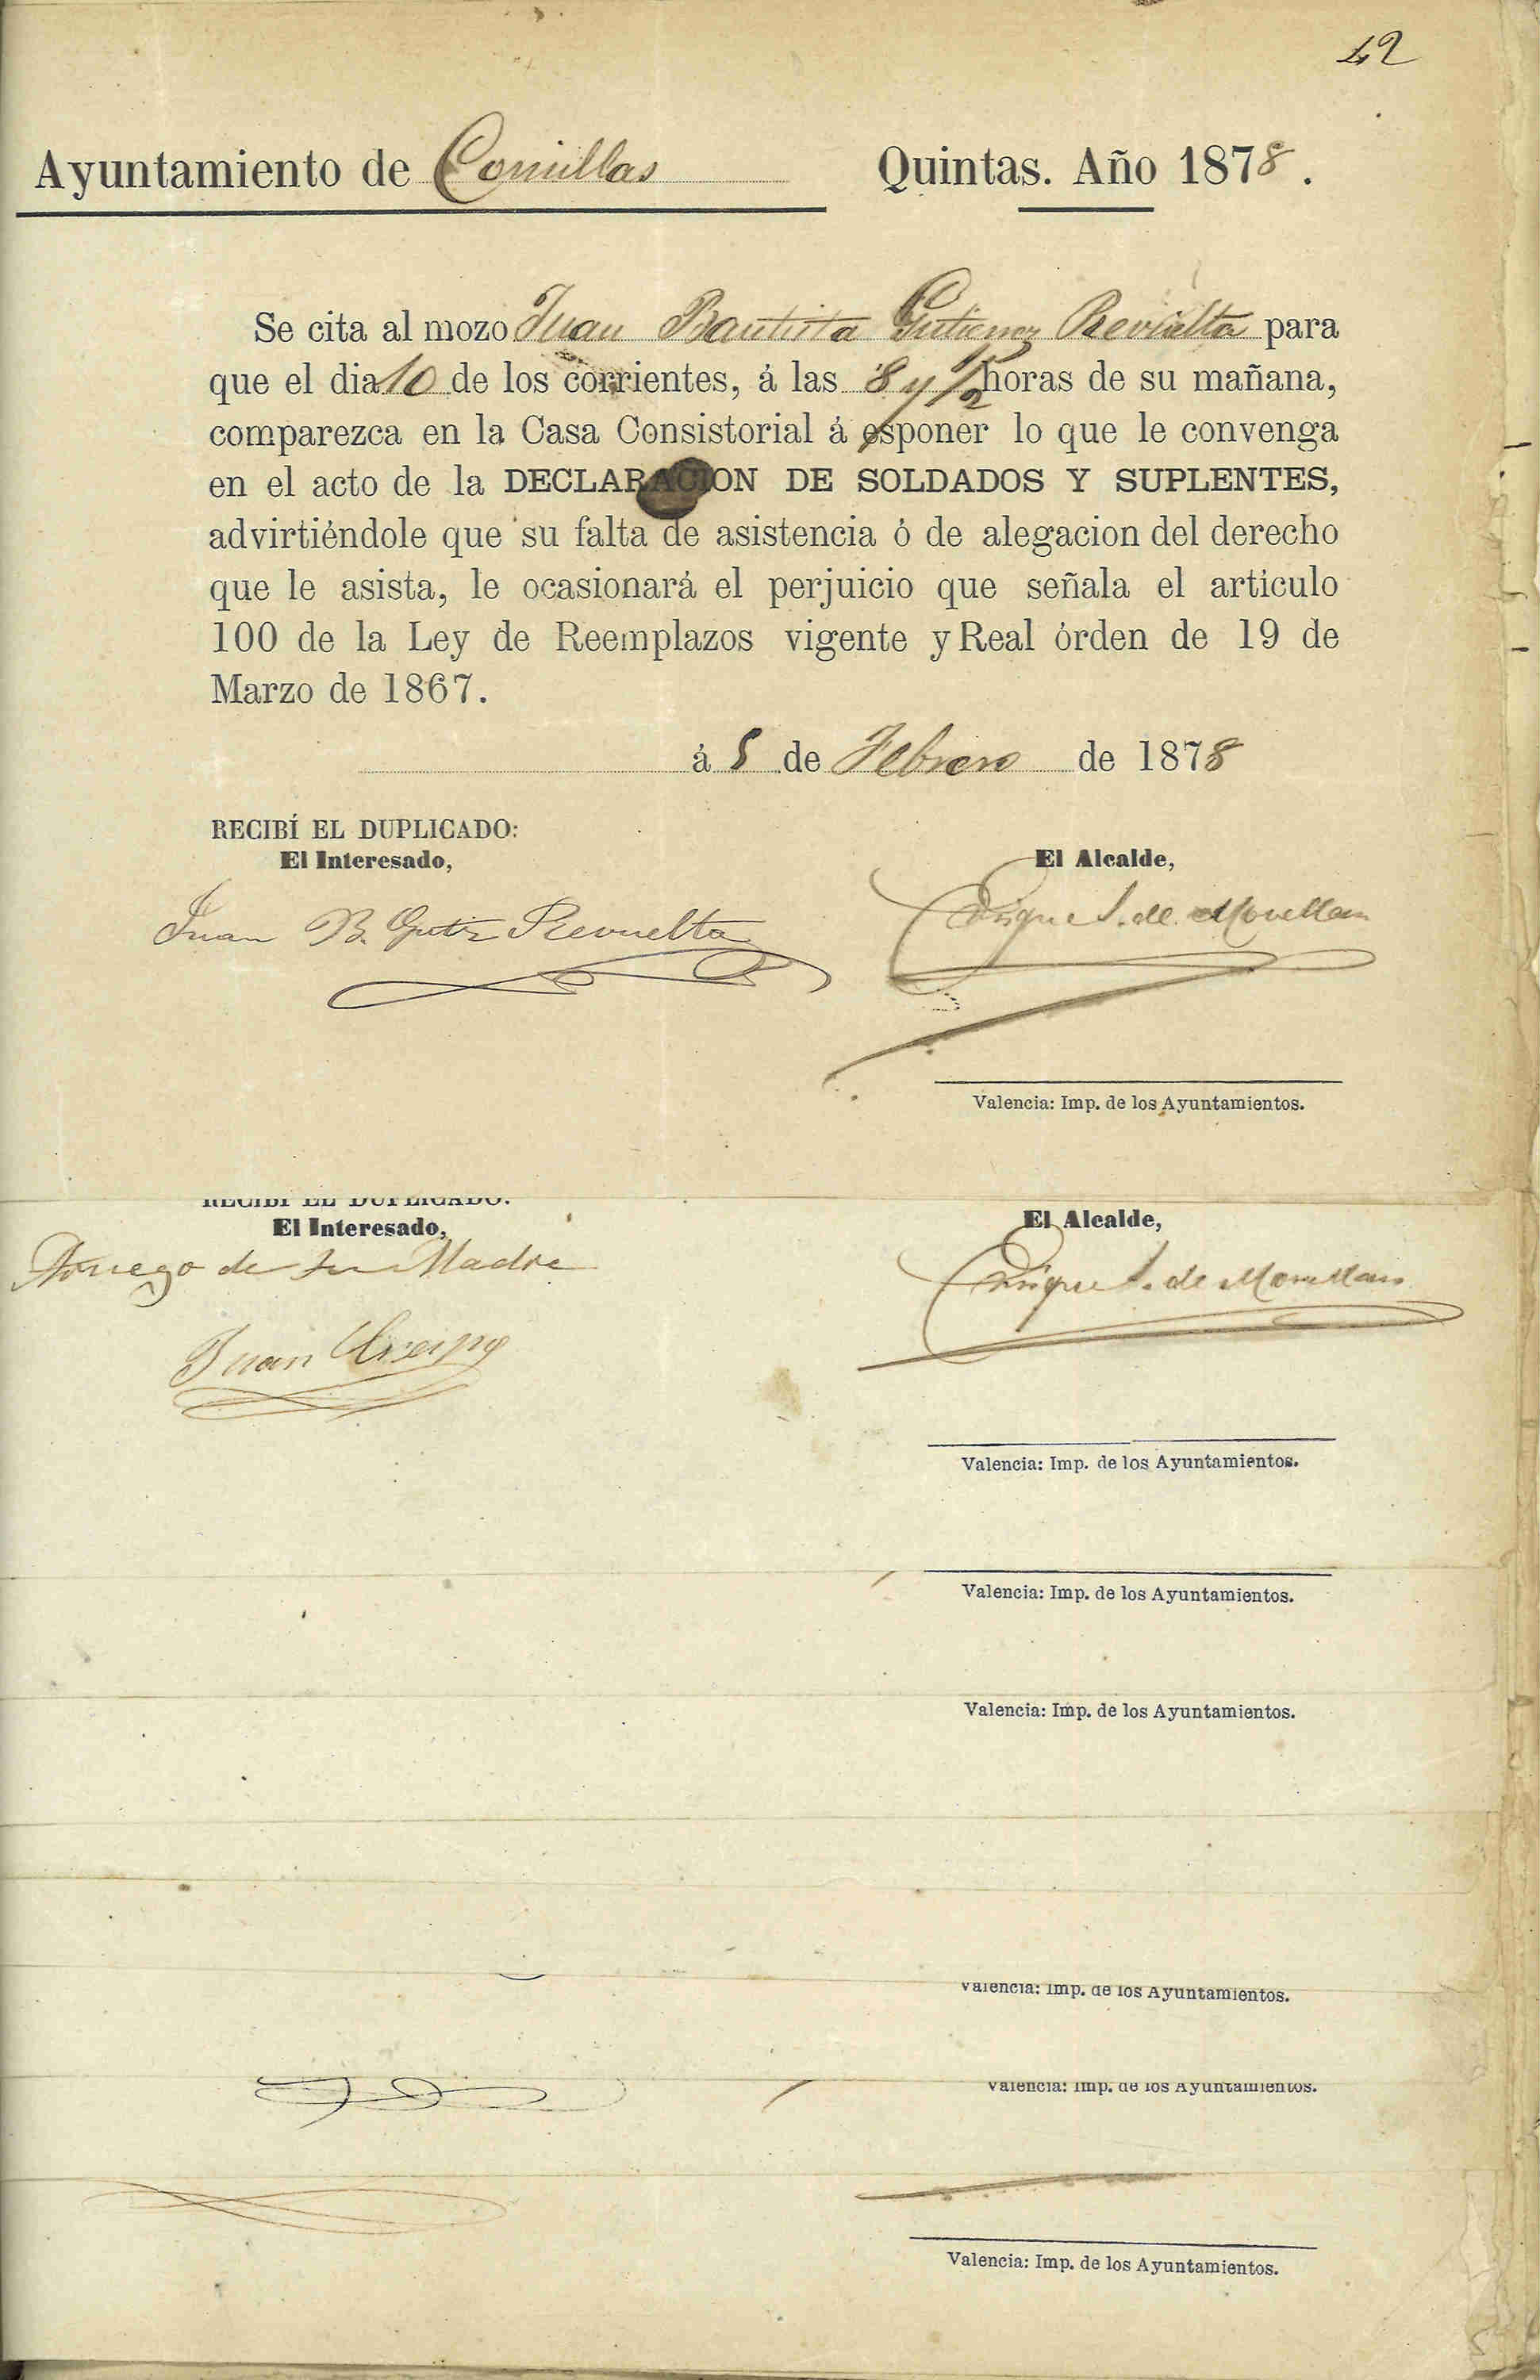 42
Ayuntamiento de Comillas Quintas. Año 1878.
Se cita al mozo Juan Bautista Gutierrez Revuelta para
que el dia 10 de los corrientes, á las 8 y 1/2 horas de su mañana,
comparezca en la Casa Consistorial á esponer lo que le convenga
en el acto de la DECLARACION DE SOLDADOS Y SUPLENTES,
advirtiéndole que su falta de asistencia ó de alegacion del derecho
que le asista, le ocasionará el perjuicio que señala el artículo
100 de la Ley de Reemplazos vigente y Real órden de 19 de
Marzo de 1867.
á 5 de Febrero de 1878
RECIBÍ EL DUPLICADO:
El Interesado, El Alcalde,
Juan B. Gutz Revuelta Enrique S. de Movellan
Valencia: Imp. de los Ayuntamientos.
RECIBÍ EL DUPLICADO:
El Interesado, El Alcalde,
A ruego de su Madre Enrique S. de Movellan
Juan
Valencia: Imp. de los Ayuntamientos.
Valencia: Imp. de los Ayuntamientos.
Valencia: Imp. de los Ayuntamientos.
Valencia: Imp. de los Ayuntamientos.
Valencia: Imp. de los Ayuntamientos.
Valencia: Imp. de los Ayuntamientos.